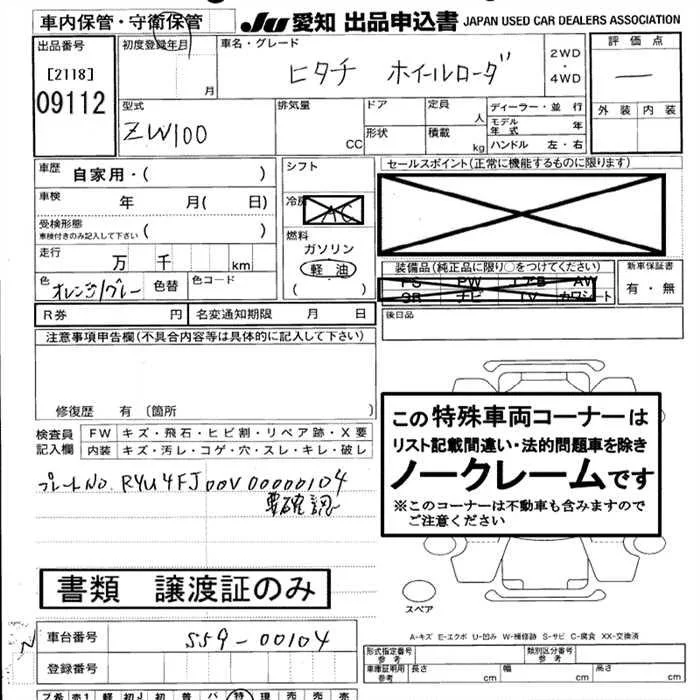 車内保管・守衛保管
JU 愛知 出品申込書 JAPAN USED CAR DEALERS ASSOCIATION
出品番号
[2118]
09112
初度登録年月
月
車名・グレード
ヒタチ ホイールローダ
2WD
・
4WD
評価点
―
外装 内装
型式
ZW100
排気量
CC
ドア
形状
定員
人
積載
kg
ディーラー・並行
モデル年式 年
ハンドル 左・右
車歴
自家用・( )
車検 年 月( 日)
受検形態
車検付きのみ記入して下さい ( )
走行 万 千 km
色 オレンジ/グレー 色替 色コード
R券 円 名変通知期限 月 日
シフト
冷房 AC
燃料
ガソリン
軽油
( )
セールスポイント(正常に機能するものに限ります)
装備品(純正品に限り○をつけてください)
PS PW エアB AW
SR ナビ TV カワシート
新車保証書
有・無
後日品
注意事項申告欄(不具合内容等は具体的に記入して下さい)
修復歴 有 〔箇所 〕
検査員記入欄
FW キズ・飛石・ヒビ割・リペア跡・X要
内装 キズ・汚レ・コゲ・穴・スレ・キレ・破レ
プレートNo. RYU4FJ00V00000104
要確認
この特殊車両コーナーは
リスト記載間違い・法的問題車を除き
ノークレームです
※このコーナーは不動車も含みますので
ご注意ください
書類 譲渡証のみ
スペア
A-キズ E-エクボ U-凹み W-補修跡 S-サビ C-腐食 XX-交換済
車台番号 S59-00104
登録番号
形式指定番号
参考
類別区分番号
参考
車庫証明用
参考
長さ cm 幅 cm 高さ cm